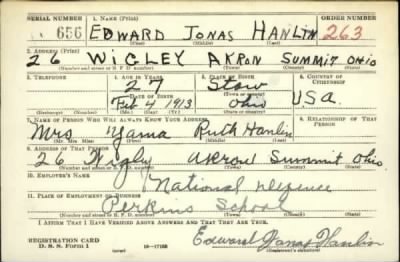 SERIAL NUMBER 1. NAME (Print) ORDER NUMBER
656 EDWARD JONAS HANLIN 263
(First) (Middle) (Last)
2. ADDRESS (Print)
26 WIGLEY AKRON SUMMIT OHIO
(Number and street or R. F. D. number) (Town) (County) (State)
3. TELEPHONE 4. AGE IN YEARS 5. PLACE OF BIRTH 6. COUNTRY OF CITIZENSHIP
27 Stow
DATE OF BIRTH
Feb 4 1913 Ohio USA.
(Exchange) (Number) (Mo.) (Day) (Yr.) (State or country)
7. NAME OF PERSON WHO WILL ALWAYS KNOW YOUR ADDRESS 8. RELATIONSHIP OF THAT PERSON
Mrs Yama Ruth Hanlin
(Mr. Mrs. Miss) (First) (Middle) (Last)
9. ADDRESS OF THAT PERSON
26 Wigly Akron Summit Ohio
(Number and street or R. F. D. number) (Town) (County) (State)
10. EMPLOYER'S NAME
National Defence
11. PLACE OF EMPLOYMENT OR BUSINESS
Perkins School
(Number and street or R. F. D. number) (Town) (County) (State)
I AFFIRM THAT I HAVE VERIFIED ABOVE ANSWERS AND THAT THEY ARE TRUE.
REGISTRATION CARD
D. S. S. Form 1 (over) 16-17105 Edward Jonas Hanlin
(Registrant's signature)